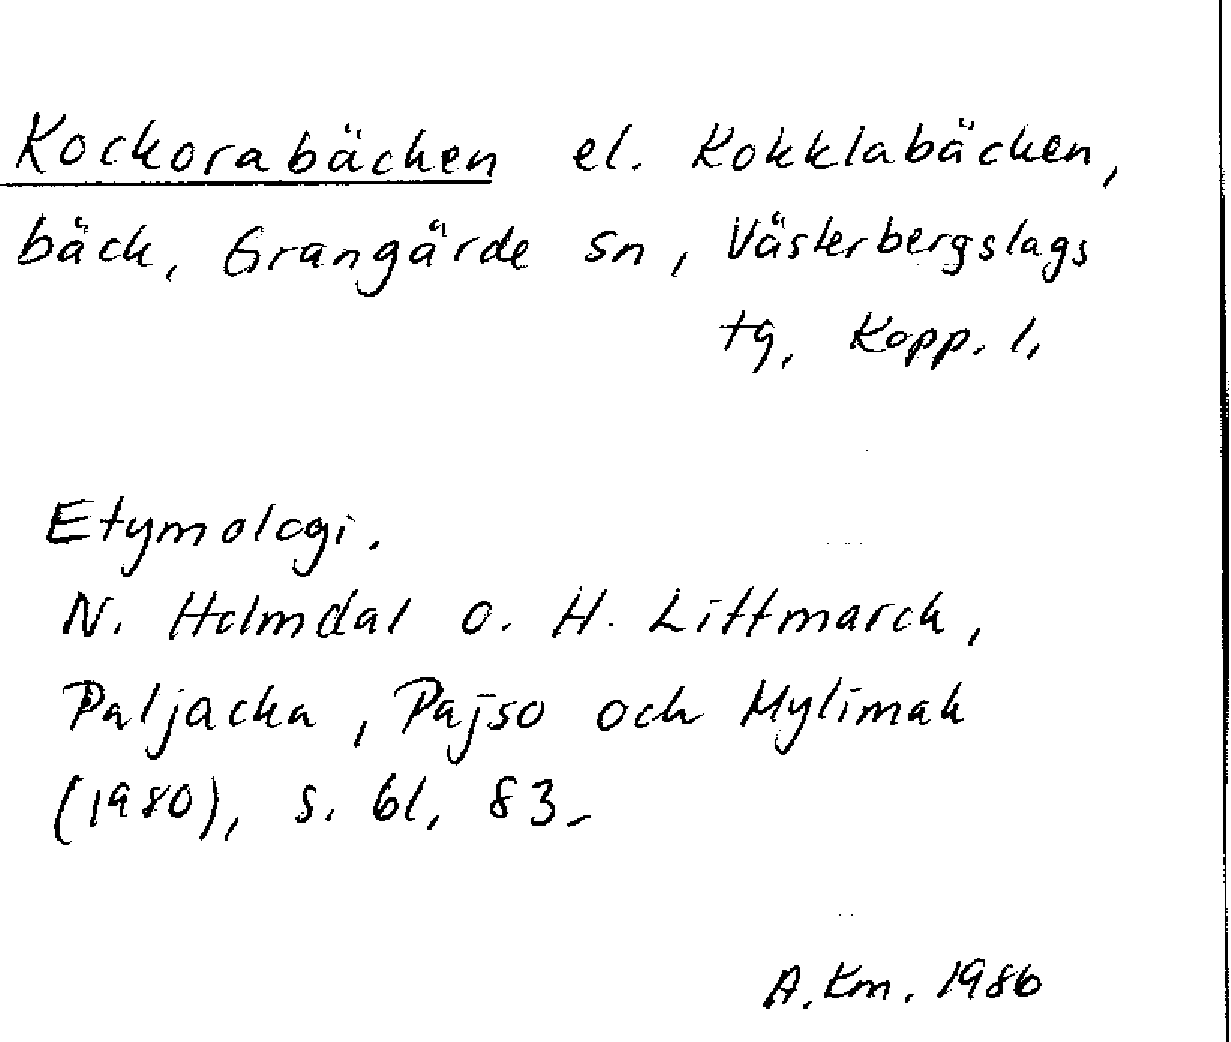 Kockorabäcken el. Kokklabäcken,
bäck, Grangärde sn, Västerbergslags
tg, Kopp. l.
Etymologi.
N. Holmdal o. H. Littmarck,
Paljacka, Pajso och Mylimak
(1980), s. 61, 83.
A. Km. 1986